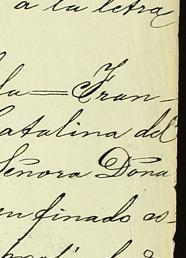 a la letra
la = Fran-
Catalina del
Señora Doña
en finado es-